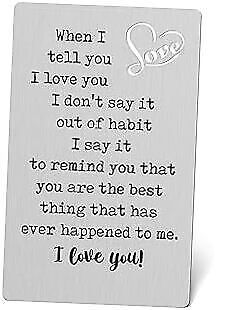 Love
When I
tell you
I love you
I don't say it
out of habit
I say it
to remind you that
you are the best
thing that has
ever happened to me.
I love you!